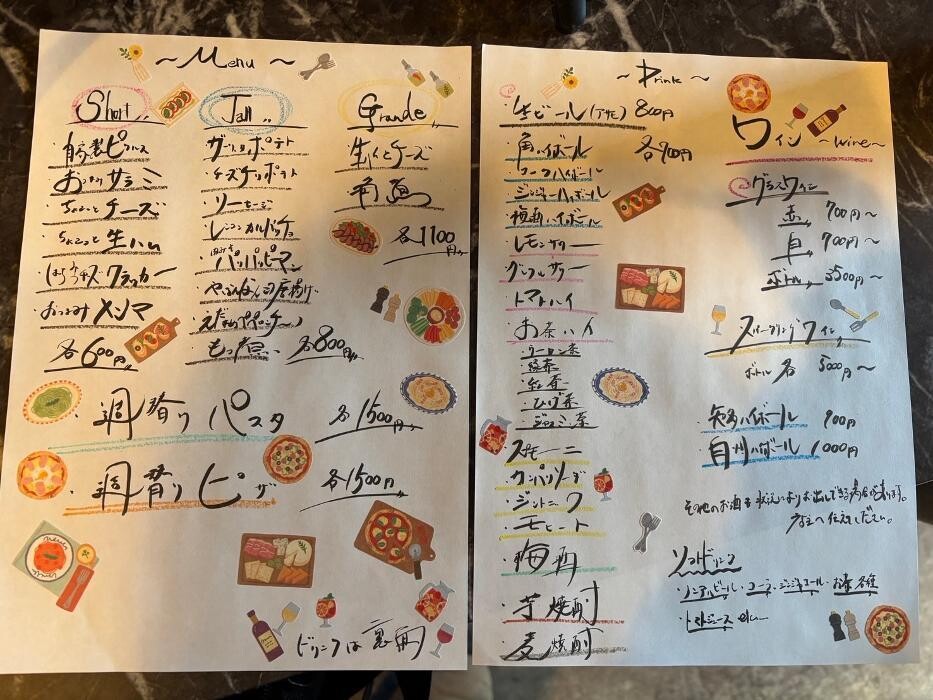 ~Menu~
Short
・自家製ピクルス
・おつまみサラミ
・ちょこっとチーズ
・ちょこっと生ハム
・はちみつチーズクラッカー
・おつまみメンマ
各600円
Tall
・ガーリックポテト
・チーズチリポテト
・ソーセージ
・レンコンカルパッチョ
・パリパリピーマン
・やげんなんこつ唐揚げ
・えだまめペペロンチーノ
各800円
Grande
・生ハムとチーズ
各1100円
週替りパスタ 各1500円
週替りピザ 各1500円
ドリンクは裏面
~Drink~
・生ビール(アサヒ) 800円
・角ハイボール 各700円
・コークハイボール
・ジンジャーハイボール
・梅酒ハイボール
・レモンサワー
・トマトハイ
・お茶ハイ
・ウーロン茶
・緑茶
・紅茶
・ジャスミン茶
・スプモーニ
・カンパリソーダ
・ジントニック
・モヒート
・梅酒
・芋焼酎
・麦焼酎
ワイン ~wine~
グラスワイン
赤 700円~
白 700円~
ボトル 3500円~
スパークリングワイン
ボトル 各 5000円~
・知多ハイボール 900円
・白州ハイボール 1000円
その他のお酒も状況によりお出しできる場合が有ります。
ソフトドリンク
・ノンアルビール・コーラ・ジンジャエール・お茶各種
・トマトジュース etc~